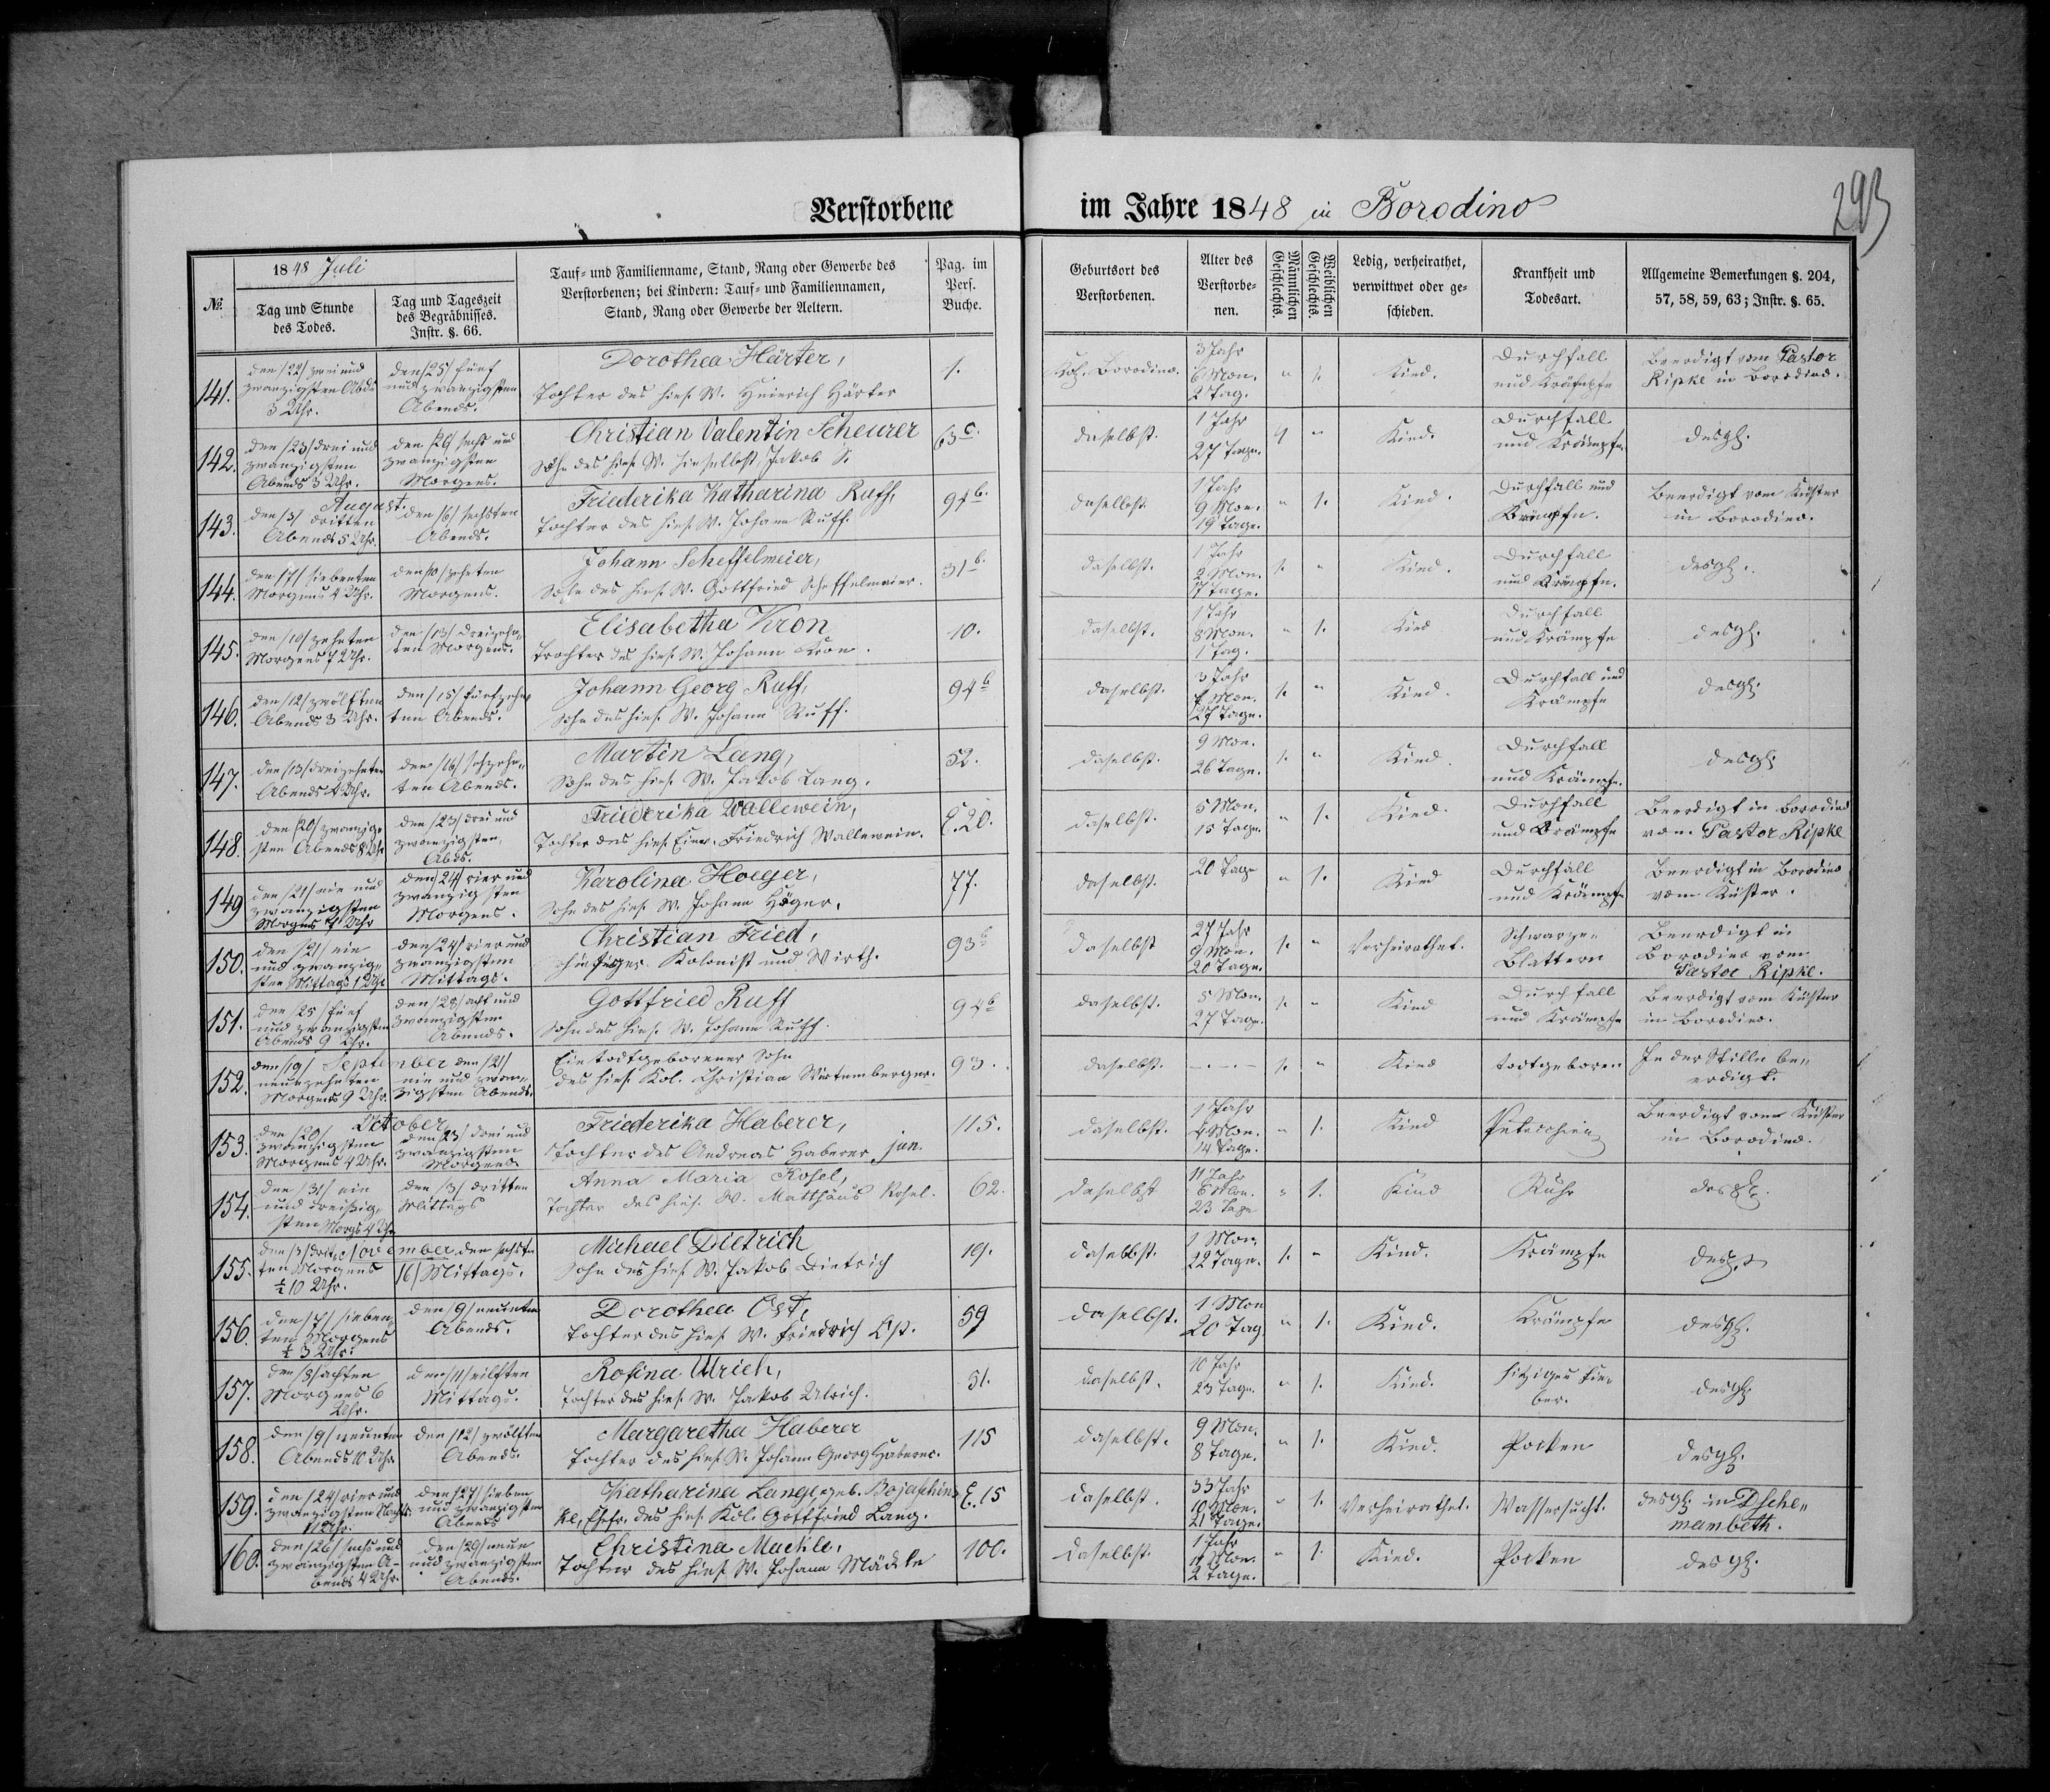 Verstorbene im Jahre 1848 in Borodino
293
№.
1848 Juli
Tag und Stunde des Todes.
Tag und Tageszeit des Begräbnisses. Instr. §. 66.
Tauf- und Familienname, Stand, Rang oder Gewerbe des Verstorbenen; bei Kindern: Tauf- und Familiennamen, Stand, Rang oder Gewerbe der Aeltern.
Pag. im Pers. Buche.
Geburtsort des Verstorbenen.
Alter des Verstorbenen.
Männlichen Geschlechts.
Weiblichen Geschlechts.
Ledig, verheirathet, verwittwet oder geschieden.
Krankheit und Todesart.
Allgemeine Bemerkungen §. 204, 57, 58, 59, 63; Instr. §. 65.
141. den /22/ zwei und zwanzigsten Abds 3 Uhr. den /25/ fünf und zwanzigsten Abends. Dorothea Härter, Tochter des hies. W. Heinrich Härter 1. Kol. Borodino. 3 Jahr 6 Mon. 2 Tag. " 1. Kind. Durchfall und Krämpfe Beerdigt vom Pastor Ripke in Borodino.
142. den /23/ drei und zwanzigsten Abends 3 Uhr. den /26/ sechs und zwanzigsten Morgens. Christian Valentin Scheurer Sohn des hies. W. hieselbst, Jakob S. 63c. daselbst. 1 Jahr 27 Tage. 1 " Kind. Durchfall und Krämpfe. desgl.
August.
143. den /3/ dritten Abends 5 Uhr. den /6/ sechsten Abends. Friederika Katharina Ruff, Tochter des hies. W. Johann Ruff. 94b. daselbst. 1 Jahr 9 Mon. 19 Tage. " 1. Kind. Durchfall und Krämpfe. Beerdigt vom Küster in Borodino.
144. den /7/ siebenten Morgens 4 Uhr. den /10/ zehnten Morgens. Johann Scheffelmeier, Sohn des hies. W. Gottfried Scheffelmaier. 31b. daselbst. 1 Jahr 2 Mon. 17 Tage. 1. " Kind. Durchfall und Krämpfe. desgl.
145. den /10/ zehnten Morgens 7 Uhr. den /13/ dreizehnten Morgens. Elisabetha Kron Tochter des hies. W. Johann Kron. 10. daselbst. 1 Jahr 8 Mon. 1 Tag. " 1. Kind Durchfall und Krämpfe desgl.
146. den /12/ zwölften Abends 3 Uhr. den /15/ fünfzehnten Abends. Johann Georg Ruff, Sohn des hies. W. Johann Ruff. 94b daselbst. 3 Jahr 7 Mon. 27 Tage. 1. " Kind. Durchfall und Krämpfe desgl.
147. den /13/ dreizehnten Abends 4 Uhr. den /16/ sechzehnten Abends. Martin Lang, Sohn des hies. W. Jakob Lang. 52. daselbst. 9 Mon. 26 Tage. 1. " Kind. Durchfall und Krämpfe. desgl.
148. den /20/ zwanzigsten Abends 8 Uhr den /23/ drei und zwanzigsten Abds. Friederika Wallewein, Tochter des hies. Einw. Friedrich Wallewein. E. 20. daselbst. 5 Mon. 15 Tage. " 1. Kind. Durchfall und Krämpfe Beerdigt in Borodino von Pastor Ripke
149 den /21/ ein und zwanzigsten Morgens 7 Uhr den /24/ vier und zwanzigsten Morgens. Karolina Hoeger, Sohn des hies. W. Johann Höger. 77. daselbst. 20 Tage " 1. Kind Durchfall und Krämpfe Beerdigt in Borodino vom Küster.
150. den /21/ ein und zwanzigsten Mittags 1 Uhr den /24/ vier und zwanzigsten Mittags. Christian Fried, hiesiger Kolonist und Wirth. 93b daselbst 27 Jahr 9 Mon. 20 Tage. 1. " Verheirathet. Schwarze Blattern Beerdigt in Borodino vom Pastor Ripke.
151. den /25/ fünf und zwanzigsten Abends 9 Uhr. den /28/ acht und zwanzigsten Abends. Gottfried Ruff Sohn des hies. W. Johann Ruff. 94b daselbst. 5 Mon. 27 Tage. 1. " Kind Durchfall und Krämpfe Beerdigt vom Küster in Borodino.
September
152. den /19/ neunzehnten Morgens 9 Uhr. den /21/ ein und zwanzigsten Abends. Ein todtgeborener Sohn des hies. Kol. Christian Wirtemberger. 93. daselbst. 1. " Kind todtgeboren In der Stille beerdigt.
October
153. den /20/ zwanzigsten Morgens 4 Uhr. den /23/ drei und zwanzigsten Morgens. Friederika Haberer, Tochter des Andreas Haberer jun. 115. daselbst. 1 Jahr 4 Mon. 14 Tage. " 1. Kind Petecchien Beerdigt vom Küster in Borodino.
154. den /31/ ein und dreißigsten Morgs 4 Uhr den /3/ dritten Mittags Anna Maria Rosel, Tochter des hies. W. Matthäus Rosel. 62. daselbst 11 Jahr 6 Mon. 23 Tage " 1. Kind Ruhr desgl.
November
155. den /3/ dritten Morgens ½ 10 Uhr. den sechsten /6/ Mittags. Michael Dietrich Sohn des hies. W. Jakob Dietrich 19. daselbst. 1 Mon. 22 Tage. 1. " Kind. Krämpfe desgl.
156. den /7/ siebenten Morgens ½ 3 Uhr. den /9/ neunten Abends. Dorothea Ost, Tochter des hies. W. Friedrich Ost. 59 daselbst. 1 Mon 20 Tag. " 1. Kind. Krämpfe desgl.
157. den /8/ achten Morgens 6 Uhr. den /11/ eilften Mittags. Rosina Ulrich, Tochter des hies. W. Jakob Ulrich. 51. daselbst. 10 Jahr 23 Tage. " 1. Kind. hitziges Fieber. desgl.
158. den /9/ neunten Abends 10 Uhr den /12/ zwölften Abends. Margaretha Haberer Tochter des hies. W. Johann Georg Haberer. 115 daselbst. 9 Mon. 8 Tage. " 1. Kind. Pocken desgl.
159. den /24/ vier und zwanzigsten Nachts 11 Uhr. den /27/ sieben und zwanzigsten Abends Katharina Lang geb. Bojaschinske, Ehefr. des hies. Kol. Gottfried Lang. E. 15 daselbst. 33 Jahr 10 Mon. 21 Tage. " 1. Verheirathet. Wassersucht. desgl. in Dschemambeth.
160. den /26/ sechs und zwanzigsten Abends 4 Uhr. den /29/ neun und zwanzigsten Abends. Christina Maekle, Tochter des hies. W. Johann Mäckle 100. daselbst. 1 Jahr 11 Mon. 2 Tage. " 1. Kind. Pocken desgl.